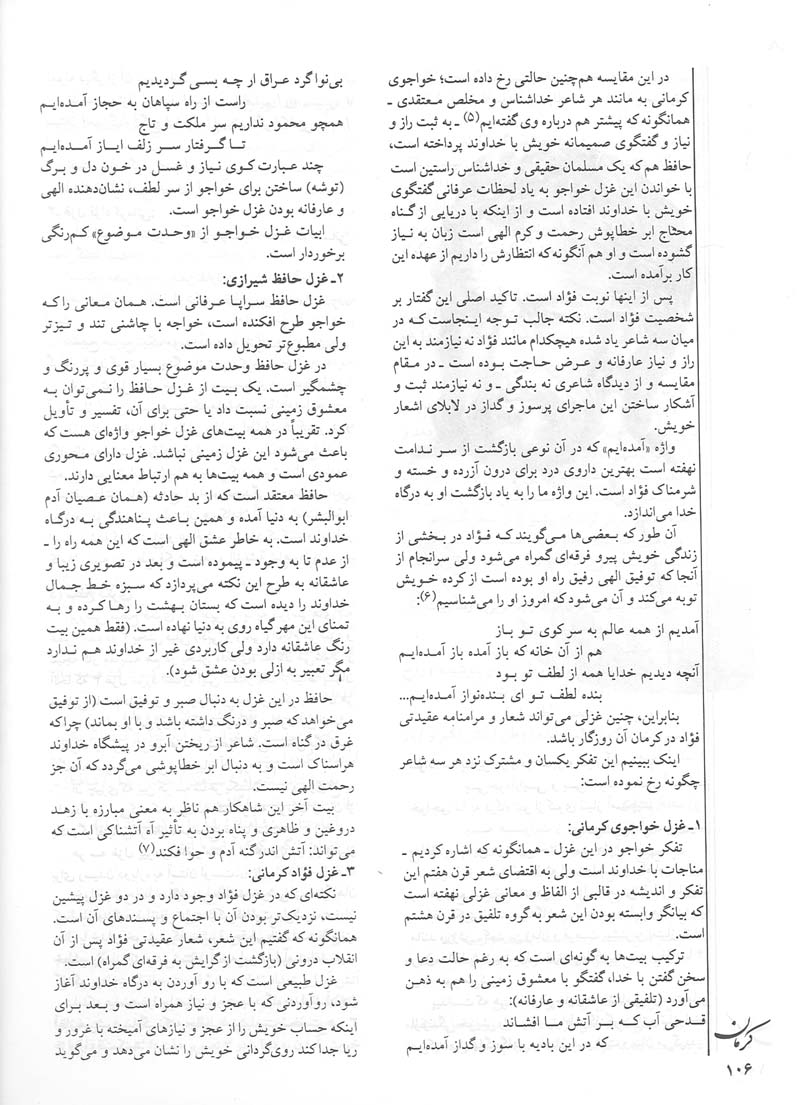 در این مقایسه هم‌چنین حالتی رخ داده است؛ خواجوی
کرمانی به مانند هر شاعر خداشناس و مخلص معتقدی ـ
همانگونه که پیشتر هم درباره وی گفته‌ایم(۵) ـ به ثبت راز و
نیاز و گفتگوی صمیمانه خویش با خداوند پرداخته است،
حافظ هم که یک مسلمان حقیقی و خداشناس راستین است
با خواندن این غزل خواجو به یاد لحظات عرفانی گفتگوی
خویش با خداوند افتاده است و از اینکه با دریایی از گناه
محتاج ابر خطاپوش رحمت و کرم الهی است زبان به نیاز
گشوده است و او هم آنگونه که انتظارش را داریم از عهده این
کار برآمده است.
پس از اینها نوبت فؤاد است. تاکید اصلی این گفتار بر
شخصیت فؤاد است. نکته جالب توجه اینجاست که در
میان سه شاعر یاد شده هیچکدام مانند فؤاد نه نیازمند به این
راز و نیاز عارفانه و عرض حاجت بوده است ـ در مقام
مقایسه و از دیدگاه شاعری نه بندگی ـ و نه نیازمند ثبت و
آشکار ساختن این ماجرای پرسوز و گداز در لابلای اشعار
خویش.
واژه «آمده‌ایم» که در آن نوعی بازگشت از سر ندامت
نهفته است بهترین داروی درد برای درون آزرده و خسته و
شرمناک فؤاد است. این واژه ما را به یاد بازگشت او به درگاه
خدا می‌اندازد.
آن طور که بعضی‌ها می‌گویند که فؤاد در بخشی از
زندگی خویش پیرو فرقه‌ای گمراه می‌شود ولی سرانجام از
آنجا که توفیق الهی رفیق راه او بوده است از کرده خویش
توبه می‌کند و آن می‌شود که امروز او را می‌شناسیم(۶):
آمدیم از همه عالم به سر کوی تو باز
هم از آن خانه که باز آمده باز آمده‌ایم
آنچه دیدیم خدایا همه از لطف تو بود
بنده لطف تو ای بنده‌نواز آمده‌ایم...
بنابراین، چنین غزلی می‌تواند شعار و مرامنامه عقیدتی
فؤاد در کرمان آن روزگار باشد.
اینک ببینیم این تفکر یکسان و مشترک نزد هر سه شاعر
چگونه رخ نموده است:
۱ـ غزل خواجوی کرمانی:
تفکر خواجو در این غزل ـ همانگونه که اشاره کردیم ـ
مناجات با خداوند است ولی به اقتضای شعر قرن هفتم این
تفکر و اندیشه در قالبی از الفاظ و معانی غزلی نهفته است
که بیانگر وابسته بودن این شعر به گروه تلفیق در قرن هشتم
است.
ترکیب بیت‌ها به گونه‌ای است که به رغم حالت دعا و
سخن گفتن با خدا، گفتگو با معشوق زمینی را هم به ذهن
می‌آورد (تلفیقی از عاشقانه و عارفانه):
قدحی آب که بر آتش ما افشاند
که در این بادیه با سوز و گداز آمده‌ایم
بی‌نوا گرد عراق ار چه بسی گردیدیم
راست از راه سپاهان به حجاز آمده‌ایم
همچو محمود نداریم سر ملکت و تاج
تا گرفتار سر زلف ایاز آمده‌ایم
چند عبارت کوی نیاز و غسل در خون دل و برگ
(توشه) ساختن برای خواجو از سر لطف، نشان‌دهنده الهی
و عارفانه بودن غزل خواجو است.
ابیات غزل خواجو از «وحدت موضوع» کم‌رنگی
برخوردار است.
۲ـ غزل حافظ شیرازی:
غزل حافظ سراپا عرفانی است. همان معانی را که
خواجو طرح افکنده است، خواجه با چاشنی تند و تیزتر
ولی مطبوع‌تر تحویل داده است.
در غزل حافظ وحدت موضوع بسیار قوی و پررنگ و
چشمگیر است. یک بیت از غزل حافظ را نمی‌توان به
معشوق زمینی نسبت داد یا حتی برای آن، تفسیر و تأویل
کرد. تقریباً در همه بیت‌های غزل خواجو واژه‌ای هست که
باعث می‌شود این غزل زمینی نباشد. غزل دارای محوری
عمودی است و همه بیت‌ها به هم ارتباط معنایی دارند.
حافظ معتقد است که از بد حادثه (همان عصیان آدم
ابوالبشر) به دنیا آمده و همین باعث پناهندگی به درگاه
خداوند است. به خاطر عشق الهی است که این همه راه را ـ
از عدم تا به وجود ـ پیموده است و بعد در تصویری زیبا و
عاشقانه به طرح این نکته می‌پردازد که سبزه خط جمال
خداوند را دیده است که بستان بهشت را رها کرده و به
تمنای این مهر گیاه روی به دنیا نهاده است. (فقط همین بیت
رنگ عاشقانه دارد ولی کاربردی غیر از خداوند هم ندارد
مگر تعبیر به ازلی بودن عشق شود).
حافظ در این غزل به دنبال صبر و توفیق است (از توفیق
می‌خواهد که صبر و درنگ داشته باشد و با او بماند) چرا که
غرق در گناه است. شاعر از ریختن آبرو در پیشگاه خداوند
هراسناک است و به دنبال ابر خطاپوشی می‌گردد که آن جز
رحمت الهی نیست.
بیت آخر این شاهکار هم ناظر به معنی مبارزه با زهد
دروغین و ظاهری و پناه بردن به تأثیر آه آتشناکی است که
می‌تواند: آتش اندر گنه آدم و حوا فکند(۷)
۳ـ غزل فؤاد کرمانی:
نکته‌ای که در غزل فؤاد وجود دارد و در دو غزل پیشین
نیست، نزدیک‌تر بودن آن با اجتماع و پسندهای آن است.
همانگونه که گفتیم این شعر، شعار عقیدتی فؤاد پس از آن
انقلاب درونی (بازگشت از گرایش به فرقه‌ای گمراه) است.
غزل طبیعی است که با رو آوردن به درگاه خداوند آغاز
شود، روآوردنی که با عجز و نیاز همراه است و بعد برای
اینکه حساب خویش را از عجز و نیازهای آمیخته با غرور و
ریا جدا کند روی‌گردانی خویش را نشان می‌دهد و می‌گوید
کرمان
۱۰۶